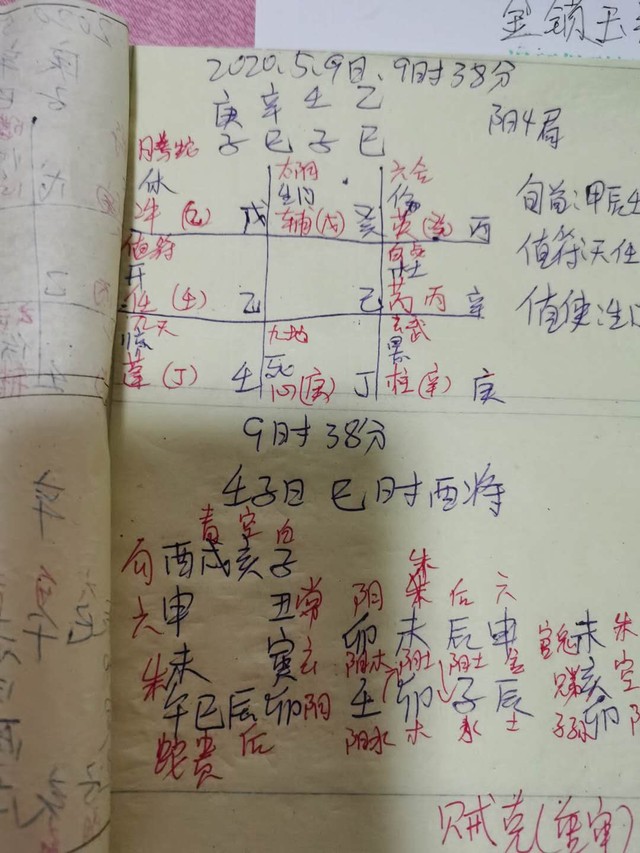 金锁玉
2020.5.9日、9时38分
庚 辛 壬 乙
子 巳 子 巳
阳4局
腾蛇 太阴 六合
休 生门 伤
冲(乙) 戊 辅(戊) 癸 英(癸) 丙
旬首:甲辰壬
值符 开
任(壬) 乙 己 芮 丙 辛
值符天任
九天 九地 玄武
死
蓬(丁) 壬 心(庚) 丁 柱(辛) 庚
9时38分
壬子日 巳时酉将
青 空 白
勾 酉 戌 亥 子
朱 后 六
六 申 丑 常 阴 卯 未 辰 申
朱 未 寅 玄 阴木 阴土 阳土 金
未 朱
亥 空
午 巳 辰 卯 阴 壬 卯 子 辰
子孙 卯 阴
蛇 贵 后 阳水 木 水 土
贼克(重审)